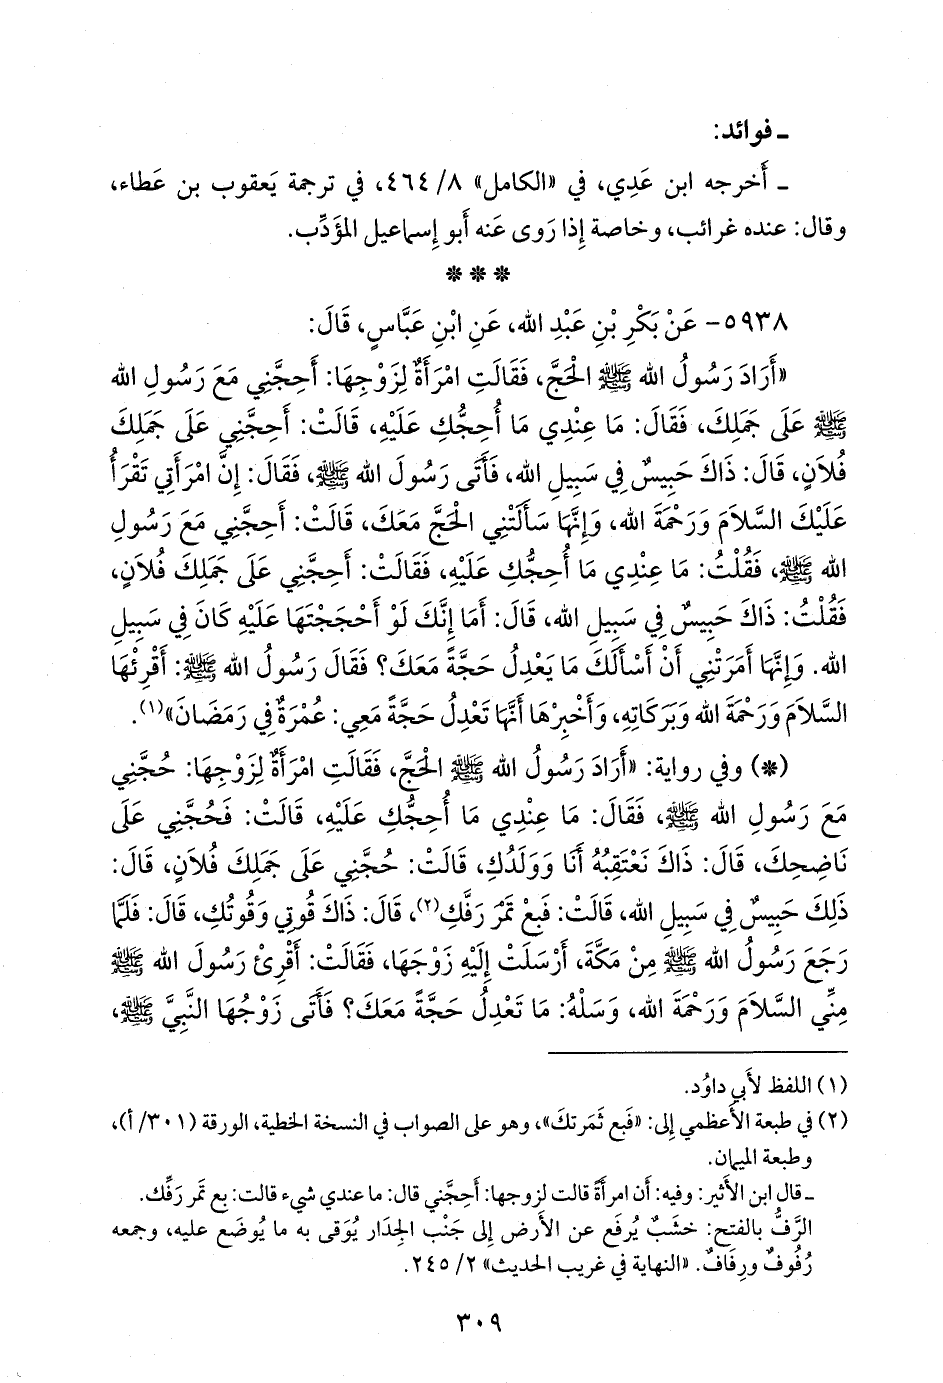 ـ فوائد:
ـ أَخرجه ابن عَدِي، في «الكامل» ٨/ ٤٦٤، في ترجمة يَعقوب بن عَطاء،
وقال: عنده غرائب، وخاصة إِذا رَوى عَنه أَبو إِسماعيل المؤَدِّب.
* * *
٥٩٣٨- عَنْ بَكْرِ بْنِ عَبْدِ الله، عَنِ ابْنِ عَبَّاسٍ، قَالَ:
«أَرَادَ رَسُولُ الله ﷺ الْحَجَّ، فَقَالَتِ امْرَأَةٌ لِزَوْجِهَا: أَحِجَّنِي مَعَ رَسُولِ الله
ﷺ عَلَى جَمَلِكَ، فَقَالَ: مَا عِنْدِي مَا أُحِجُّكِ عَلَيْهِ، قَالَتْ: أَحِجَّنِي عَلَى جَمَلِكَ
فُلاَنٍ، قَالَ: ذَاكَ حَبِيسٌ فِي سَبِيلِ الله، فَأَتَى رَسُولَ الله ﷺ، فَقَالَ: إِنَّ امْرَأَتِي تَقْرَأُ
عَلَيْكَ السَّلاَمَ وَرَحْمَةَ الله، وَإِنَّهَا سَأَلَتْنِي الْحَجَّ مَعَكَ، قَالَتْ: أَحِجَّنِي مَعَ رَسُولِ
الله ﷺ، فَقُلْتُ: مَا عِنْدِي مَا أُحِجُّكِ عَلَيْهِ، فَقَالَتْ: أَحِجَّنِي عَلَى جَمَلِكَ فُلاَنٍ،
فَقُلْتُ: ذَاكَ حَبِيسٌ فِي سَبِيلِ الله، قَالَ: أَمَا إِنَّكَ لَوْ أَحْجَجْتَهَا عَلَيْهِ كَانَ فِي سَبِيلِ
الله. وَإِنَّهَا أَمَرَتْنِي أَنْ أَسْأَلَكَ مَا يَعْدِلُ حَجَّةً مَعَكَ؟ فَقَالَ رَسُولُ الله ﷺ: أَقْرِئْهَا
السَّلاَمَ وَرَحْمَةَ الله وَبَرَكَاتِهِ، وَأَخْبِرْهَا أَنَّهَا تَعْدِلُ حَجَّةً مَعِي: عُمْرَةٌ فِي رَمَضَانَ»(١).
(*) وفي رواية: «أَرَادَ رَسُولُ الله ﷺ الْحَجَّ، فَقَالَتِ امْرَأَةٌ لِزَوْجِهَا: حُجَّنِي
مَعَ رَسُولِ الله ﷺ، فَقَالَ: مَا عِنْدِي مَا أُحِجُّكِ عَلَيْهِ، قَالَتْ: فَحُجَّنِي عَلَى
نَاضِحِكَ، قَالَ: ذَاكَ نَعْتَقِبُهُ أَنَا وَوَلَدُكِ، قَالَتْ: حُجَّنِي عَلَى جَمَلِكَ فُلاَنٍ، قَالَ:
ذَلِكَ حَبِيسٌ فِي سَبِيلِ الله، قَالَتْ: فَبِعْ تَمْرَ رَفِّكِ(٢)، قَالَ: ذَاكَ قُوتِي وَقُوتُكِ، قَالَ: فَلَمَّا
رَجَعَ رَسُولُ الله ﷺ مِنْ مَكَّةَ، أَرْسَلَتْ إِلَيْهِ زَوْجَهَا، فَقَالَتْ: أَقْرِئْ رَسُولَ الله ﷺ
مِنِّي السَّلاَمَ وَرَحْمَةَ الله، وَسَلْهُ: مَا تَعْدِلُ حَجَّةً مَعَكَ؟ فَأَتَى زَوْجُهَا النَّبِيَّ ﷺ،
(١) اللفظ لأَبي داوُد.
(٢) في طبعة الأَعظمي إِلى: «فَبع ثَمَرتكَ»، وهو على الصواب في النسخة الخطية، الورقة (٣٠١/ أ)،
وطبعة الميمان.
ـ قال ابن الأَثير: وفيه: أَن امرأَةً قالت لزوجها: أَحِجَّني قال: ما عندي شيء قالت: بع تَمر رَفِّك.
الرَّفُّ بالفتح: خشَبٌ يُرفَع عن الأَرض إِلى جَنْب الجِدَار يُوَقى به ما يُوضَع عليه، وجمعه
رُفُوفٌ ورِفَافٌ. «النهاية في غريب الحديث» ٢/ ٢٤٥.
٣٠٩